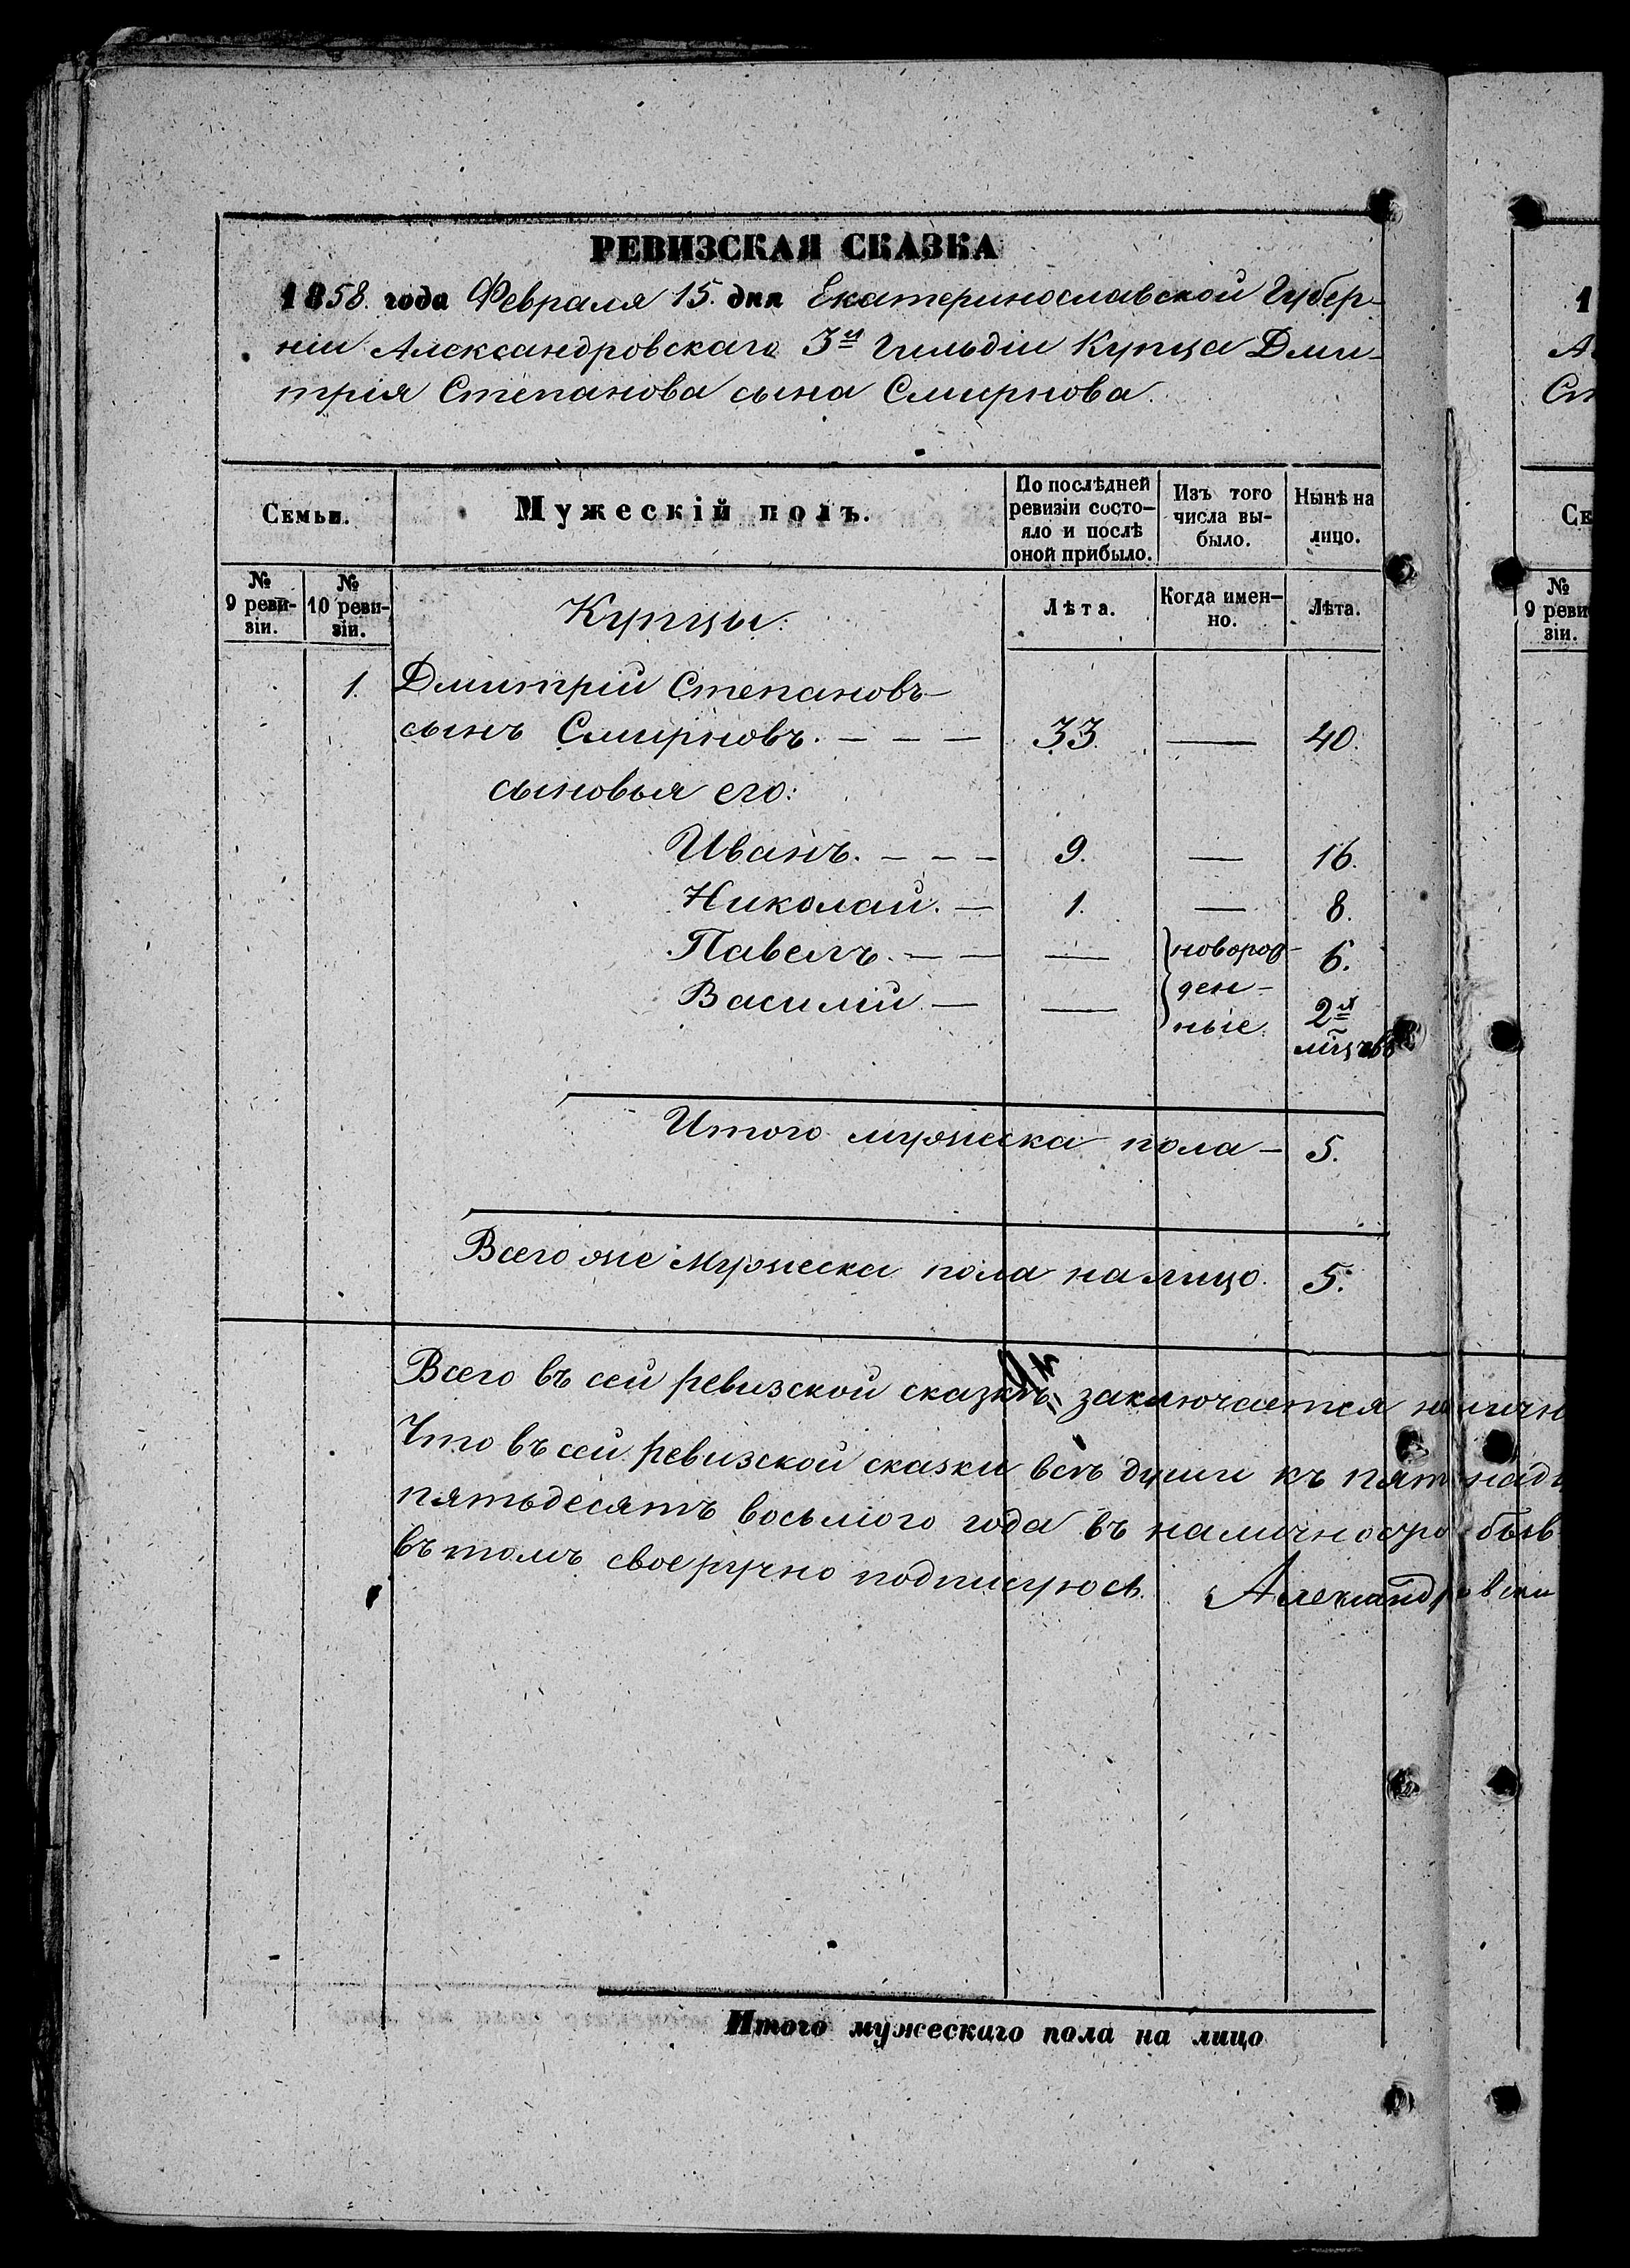 РЕВИЗСКАЯ СКАЗКА
1858. года Февраля 15. дня Екатеринославской Губер-
ніи Александровскаго 3й Гильдіи Купца Дми-
трія Степанова сына Смирнова.
Семьи. Мужескій полъ. По послѣдней ревизіи состо- яло и послѣ оной прибыло. Изъ того числа вы- было. Нынѣ на лицо.
№ 9 реви- зіи. № 10 реви- зіи. Купцы: Лѣта. Когда имен- но. Лѣта.
1. Дмитрій Степановъ
сынъ Смирновъ. — — — 33. — 40.
сыновья его:
Иванъ. — — — 9. — 16.
Николай. — 1. — 8.
Павелъ. — — — новорож- 6.
Василій — — ден- 2х
ные. мѣсяцовъ
Итого мужеска пола — 5.
Всего же мужеска пола на лицо. 5.
Всего въ сей ревизской сказкѣ заключается налично
Что въ сей ревизской сказки всѣ души къ пятнадц
пятьдесятъ восьмого года въ наличности быв
въ томъ своеручно подписуюсь. Александровскі
Итого мужескаго пола на лицо
1
А
Ст
Се
№
9 реви
зіи.